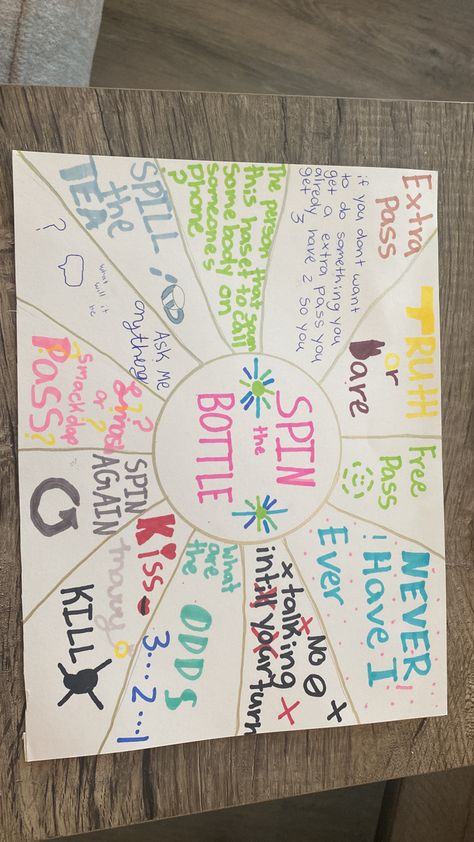 SPIN
the
BOTTLE
Extra
Pass
if you dont want
to do something you
get a extra pass you
already have 2 so you
get 3
TRUTH
or
Dare
Free
Pass
NEVER
Have I
Ever
!
No
talking
intill your turn
What
are
the
ODDS
3...2...1
Kiss
marry
KILL
SPIN
AGAIN
smash
or
smackdop
PASS?
SPILL
the
TEA
!
Ask me
anything
what will it
be
?
The person that
this has et to call
some body on
someone's
phone
?